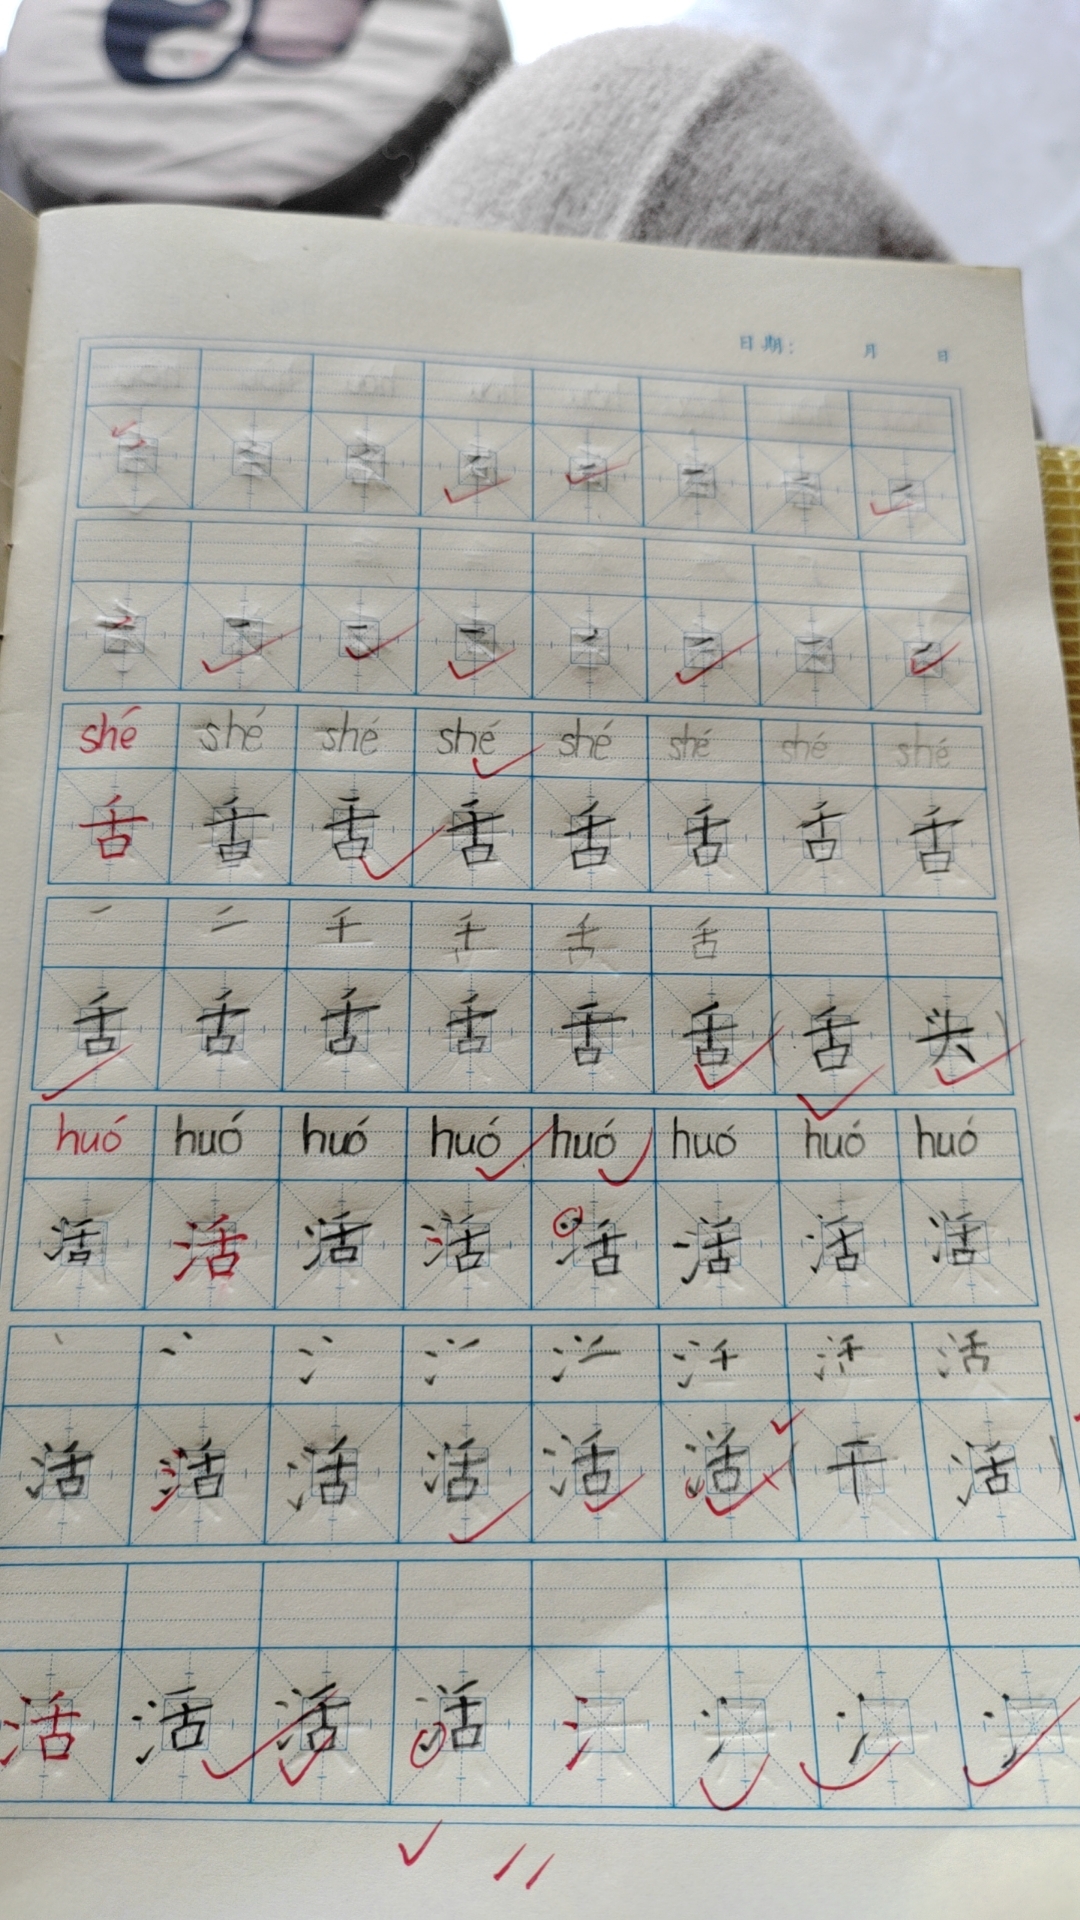 日期: 月 日
shé shé shé shé shé shé shé shé
舌 舌 舌 舌 舌 舌 舌 舌
一 二 千 舌
舌 舌 舌 舌 舌 舌 (舌 头)
huó huó huó huó huó huó huó huó
活 活 活 活 活 活 活 活
丶 冫 氵 活
活 活 活 活 活 活 (干 活)
活 活 活 活 氵 氵 氵 氵